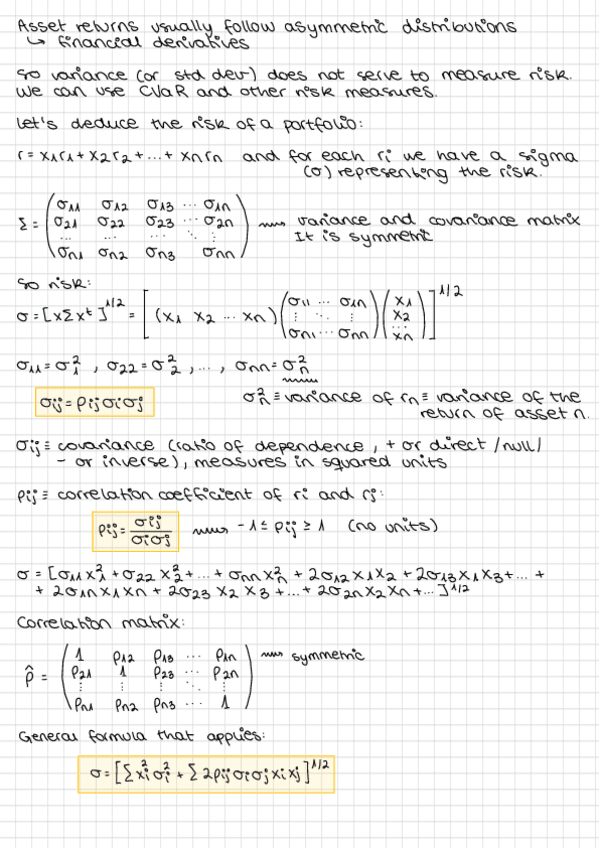 Asset returns usually follow asymmetric distributions
↳ financial derivatives
so variance (or std dev) does not serve to measure risk.
We can use CVaR and other risk measures.
Let's deduce the risk of a portfolio:
r = x₁r₁ + x₂r₂ + ... + xₙrₙ and for each ri we have a sigma
(σ) representing the risk.
Σ = (σ₁₁ σ₁₂ σ₁₃ ... σ₁ₙ
σ₂₁ σ₂₂ σ₂₃ ... σ₂ₙ
... ... ... ⋱ ⋮
σₙ₁ σₙ₂ σₙ₃ σₙₙ) ⟿ variance and covariance matrix
It is symmetric
so risk:
σ = [xΣxᵗ]^1/2 = [(x₁ x₂ ... xₙ) (σ₁₁ ... σ₁ₙ
⋮ ⋱ ⋮
σₙ₁ ... σₙₙ) (x₁
x₂
...
xₙ)]^1/2
σ₁₁ = σ₁² , σ₂₂ = σ₂² , ... , σₙₙ = σₙ²
σij = ρij σi σj
σₙ² ≡ variance of rₙ ≡ variance of the
return of asset n.
σij ≡ covariance (ratio of dependence, + or direct / null /
- or inverse), measures in squared units
ρij ≡ correlation coefficient of ri and rj:
ρij = σij / σiσj ⟿ -1 ≤ ρij ≥ 1 (no units)
σ = [σ₁₁x₁² + σ₂₂x₂² + ... + σₙₙxₙ² + 2σ₁₂x₁x₂ + 2σ₁₃x₁x₃ + ... +
+ 2σ₁ₙx₁xₙ + 2σ₂₃x₂x₃ + ... + 2σ₂ₙx₂xₙ + ...]^1/2
Correlation matrix:
ρ̂ = (1 ρ₁₂ ρ₁₃ ... ρ₁ₙ
ρ₂₁ 1 ρ₂₃ ... ρ₂ₙ
⋮ ⋮ ⋮ ⋱ ⋮
ρₙ₁ ρₙ₂ ρₙ₃ ... 1) ⟿ symmetric
General formula that applies:
σ = [Σxi²σi² + Σ2ρijσiσjxixj]^1/2